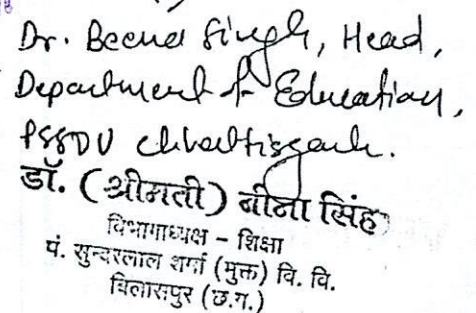 Dr. Beena Singh, Head,
Department of Education,
PSSOU Chhattisgarh.
डॉ. (श्रीमती) बीना सिंह
विभागाध्यक्ष - शिक्षा
पं. सुन्दरलाल शर्मा (मुक्त) वि. वि.
बिलासपुर (छ.ग.)